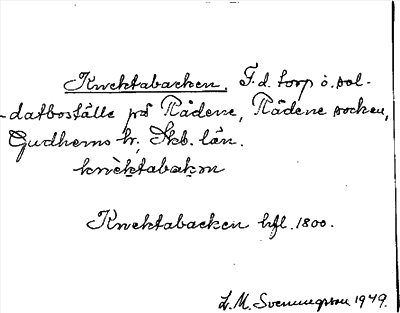 Knektabacken, F.d. torp o. sol-
datboställe på Rådene, Rådene socken,
Gudhems hr, Skb. län.
knèktabakən
Knektabacken hfl. 1800.
L.M. Svenungsson 1949.